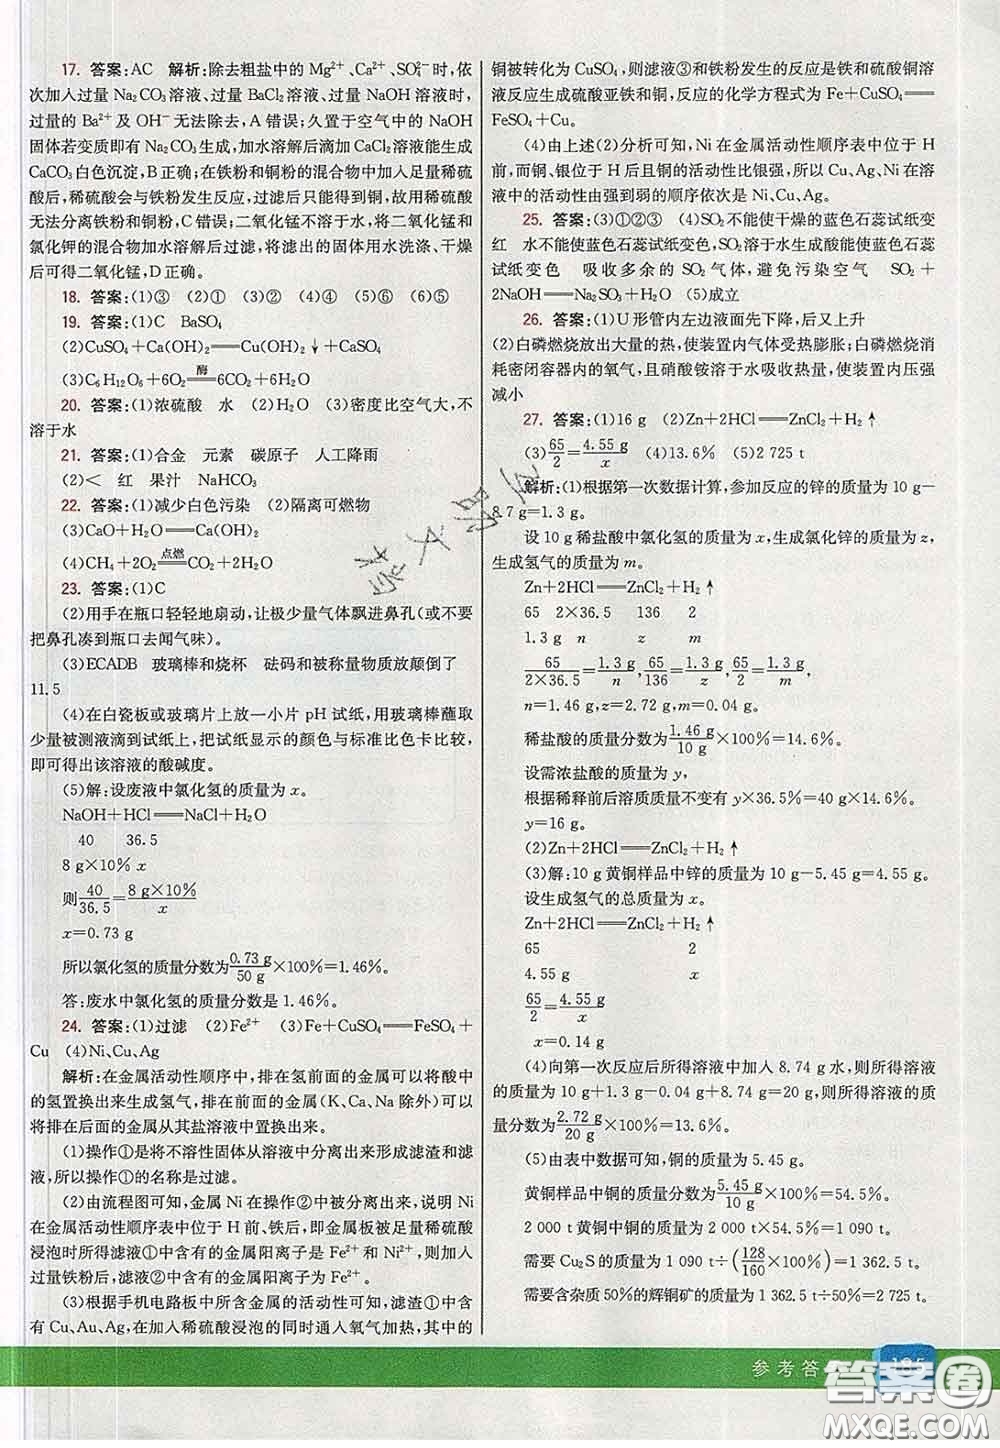 17. 答案:AC 解析:除去粗盐中的 Mg²⁺、Ca²⁺、SO₄²⁻时,依
次加入过量 Na₂CO₃ 溶液、过量 BaCl₂ 溶液、过量 NaOH 溶液时,
过量的 Ba²⁺ 及 OH⁻ 无法除去,A 错误;久置于空气中的 NaOH
固体若变质即有 Na₂CO₃ 生成,加水溶解后滴加 CaCl₂ 溶液能生成
CaCO₃ 白色沉淀,B 正确;在铁粉和铜粉的混合物中加入足量稀硫
酸后,稀硫酸会与铁粉发生反应,过滤后只能得到铜,故用稀硫酸
无法分离铁粉和铜粉,C 错误;二氧化锰不溶于水,将二氧化锰和
氯化钾的混合物加水溶解后过滤,将滤出的固体用水洗涤、干燥
后可得二氧化锰,D 正确。
18. 答案:(1)③ (2)① (3)② (4)④ (5)⑥ (6)⑤
19. 答案:(1)C BaSO₄
(2)CuSO₄+Ca(OH)₂══Cu(OH)₂↓+CaSO₄
(3)C₆H₁₂O₆+6O₂═酶═6CO₂+6H₂O
20. 答案:(1)浓硫酸 水 (2)H₂O (3)密度比空气大,不
溶于水
21. 答案:(1)合金 元素 碳原子 人工降雨
(2)< 红 果汁 NaHCO₃
22. 答案:(1)减少白色污染 (2)隔离可燃物
(3)CaO+H₂O══Ca(OH)₂
(4)CH₄+2O₂═点燃═CO₂+2H₂O
23. 答案:(1)C
(2)用手在瓶口轻轻地扇动,让极少量气体飘进鼻孔(或不要
把鼻孔凑到瓶口去闻气味)。
(3)ECADB 玻璃棒和烧杯 砝码和被称量物质放颠倒了
11.5
(4)在白瓷板或玻璃片上放一小片 pH 试纸,用玻璃棒蘸取
少量被测液滴到试纸上,把试纸显示的颜色与标准比色卡比较,
即可得出该溶液的酸碱度。
(5)解:设废液中氯化氢的质量为 x。
NaOH+HCl══NaCl+H₂O
40 36.5
8 g×10% x
则40/36.5=8 g×10%/x
x=0.73 g
所以氯化氢的质量分数为0.73 g/50 g×100%=1.46%。
答:废水中氯化氢的质量分数是 1.46%。
24. 答案:(1)过滤 (2)Fe²⁺ (3)Fe+CuSO₄══FeSO₄+
Cu (4)Ni、Cu、Ag
解析:在金属活动性顺序中,排在氢前面的金属可以将酸中
的氢置换出来生成氢气,排在前面的金属(K、Ca、Na 除外)可以
将排在后面的金属从其盐溶液中置换出来。
(1)操作①是将不溶性固体从溶液中分离出来形成滤渣和滤
液,所以操作①的名称是过滤。
(2)由流程图可知,金属 Ni 在操作②中被分离出来,说明 Ni
在金属活动性顺序表中位于 H 前、铁后,即金属板被足量稀硫酸
浸泡时所得滤液①中含有的金属阳离子是 Fe²⁺ 和 Ni²⁺,则加入
过量铁粉后,滤液②中含有的金属阳离子为 Fe²⁺。
(3)根据手机电路板中所含金属的活动性可知,滤渣①中含
有 Cu、Au、Ag,在加入稀硫酸浸泡的同时通入氧气加热,其中的
铜被转化为 CuSO₄,则滤液③和铁粉发生的反应是铁和硫酸铜溶
液反应生成硫酸亚铁和铜,反应的化学方程式为 Fe+CuSO₄══
FeSO₄+Cu。
(4)由上述(2)分析可知,Ni 在金属活动性顺序表中位于 H
前,而铜、银位于 H 后且铜的活动性比银强,所以 Cu、Ag、Ni 在溶
液中的活动性由强到弱的顺序依次是 Ni、Cu、Ag。
25. 答案:(3)①②③ (4)SO₂不能使干燥的蓝色石蕊试纸变
红 水不能使蓝色石蕊试纸变色,SO₂溶于水生成酸能使蓝色石蕊
试纸变色 吸收多余的 SO₂ 气体,避免污染空气 SO₂+
2NaOH══Na₂SO₃+H₂O (5)成立
26. 答案:(1)U 形管内左边液面先下降,后又上升
(2)白磷燃烧放出大量的热,使装置内气体受热膨胀;白磷燃烧消
耗密闭容器内的氧气,且硝酸铵溶于水吸收热量,使装置内压强
减小
27. 答案:(1)16 g (2)Zn+2HCl══ZnCl₂+H₂↑
(3)65/2=4.55 g/x (4)13.6% (5)2 725 t
解析:(1)根据第一次数据计算,参加反应的锌的质量为 10 g-
8.7 g=1.3 g。
设 10 g 稀盐酸中氯化氢的质量为 x,生成氯化锌的质量为 z,
生成氢气的质量为 m。
Zn+2HCl══ZnCl₂+H₂↑
65 2×36.5 136 2
1.3 g n z m
65/2×36.5=1.3 g/n,65/136=1.3 g/z,65/2=1.3 g/m,
n=1.46 g,z=2.72 g,m=0.04 g。
稀盐酸的质量分数为1.46 g/10 g×100%=14.6%。
设需浓盐酸的质量为 y,
根据稀释前后溶质质量不变有 y×36.5%=40 g×14.6%。
y=16 g。
(2)Zn+2HCl══ZnCl₂+H₂↑
(3)解:10 g 黄铜样品中锌的质量为 10 g-5.45 g=4.55 g。
设生成氢气的总质量为 x。
Zn+2HCl══ZnCl₂+H₂↑
65 2
4.55 g x
65/2=4.55 g/x
x=0.14 g
(4)向第一次反应后所得溶液中加入 8.74 g 水,则所得溶液
的质量为 10 g+1.3 g-0.04 g+8.74 g=20 g,则所得溶液的质
量分数为2.72 g/20 g×100%=13.6%。
(5)由表中数据可知,铜的质量为 5.45 g。
黄铜样品中铜的质量分数为5.45 g/10 g×100%=54.5%。
2 000 t 黄铜中铜的质量为 2 000 t×54.5%=1 090 t。
需要 Cu₂S 的质量为 1 090 t÷(128/160×100%)=1 362.5 t。
需要含杂质 50%的辉铜矿的质量为 1 362.5 t÷50%=2 725 t。
参考答
答案圈
MXQE.COM